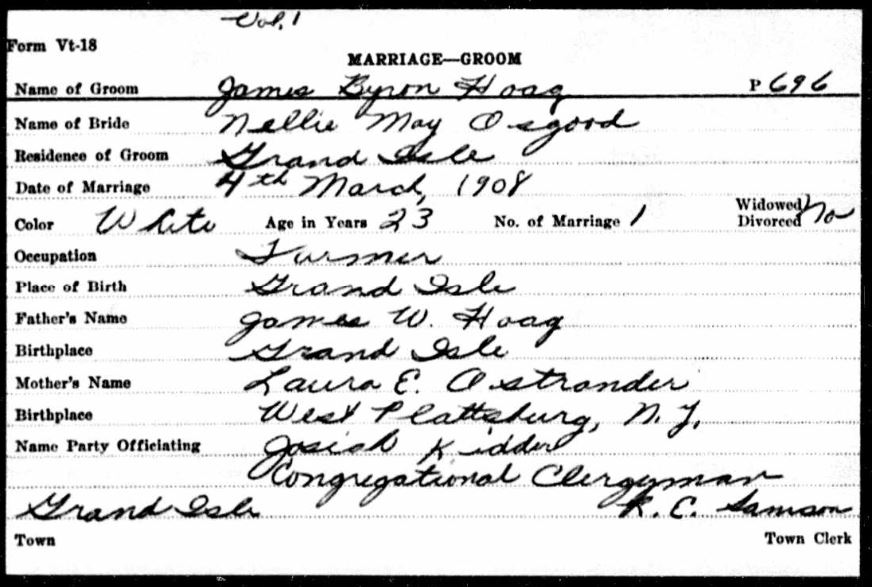 Vol. 1
Form Vt-18
MARRIAGE—GROOM
Name of Groom James Byron Hoag P 696
Name of Bride Nellie May Osgood
Residence of Groom Grand Isle
Date of Marriage 4th March, 1908
Color White Age in Years 23 No. of Marriage 1 Widowed Divorced No
Occupation Farmer
Place of Birth Grand Isle
Father's Name James W. Hoag
Birthplace Grand Isle
Mother's Name Laura E. Ostrander
Birthplace West Plattsburg, N.Y.
Name Party Officiating Josiah Kidder
Congregational Clergyman
Grand Isle R. C. Samson
Town Town Clerk